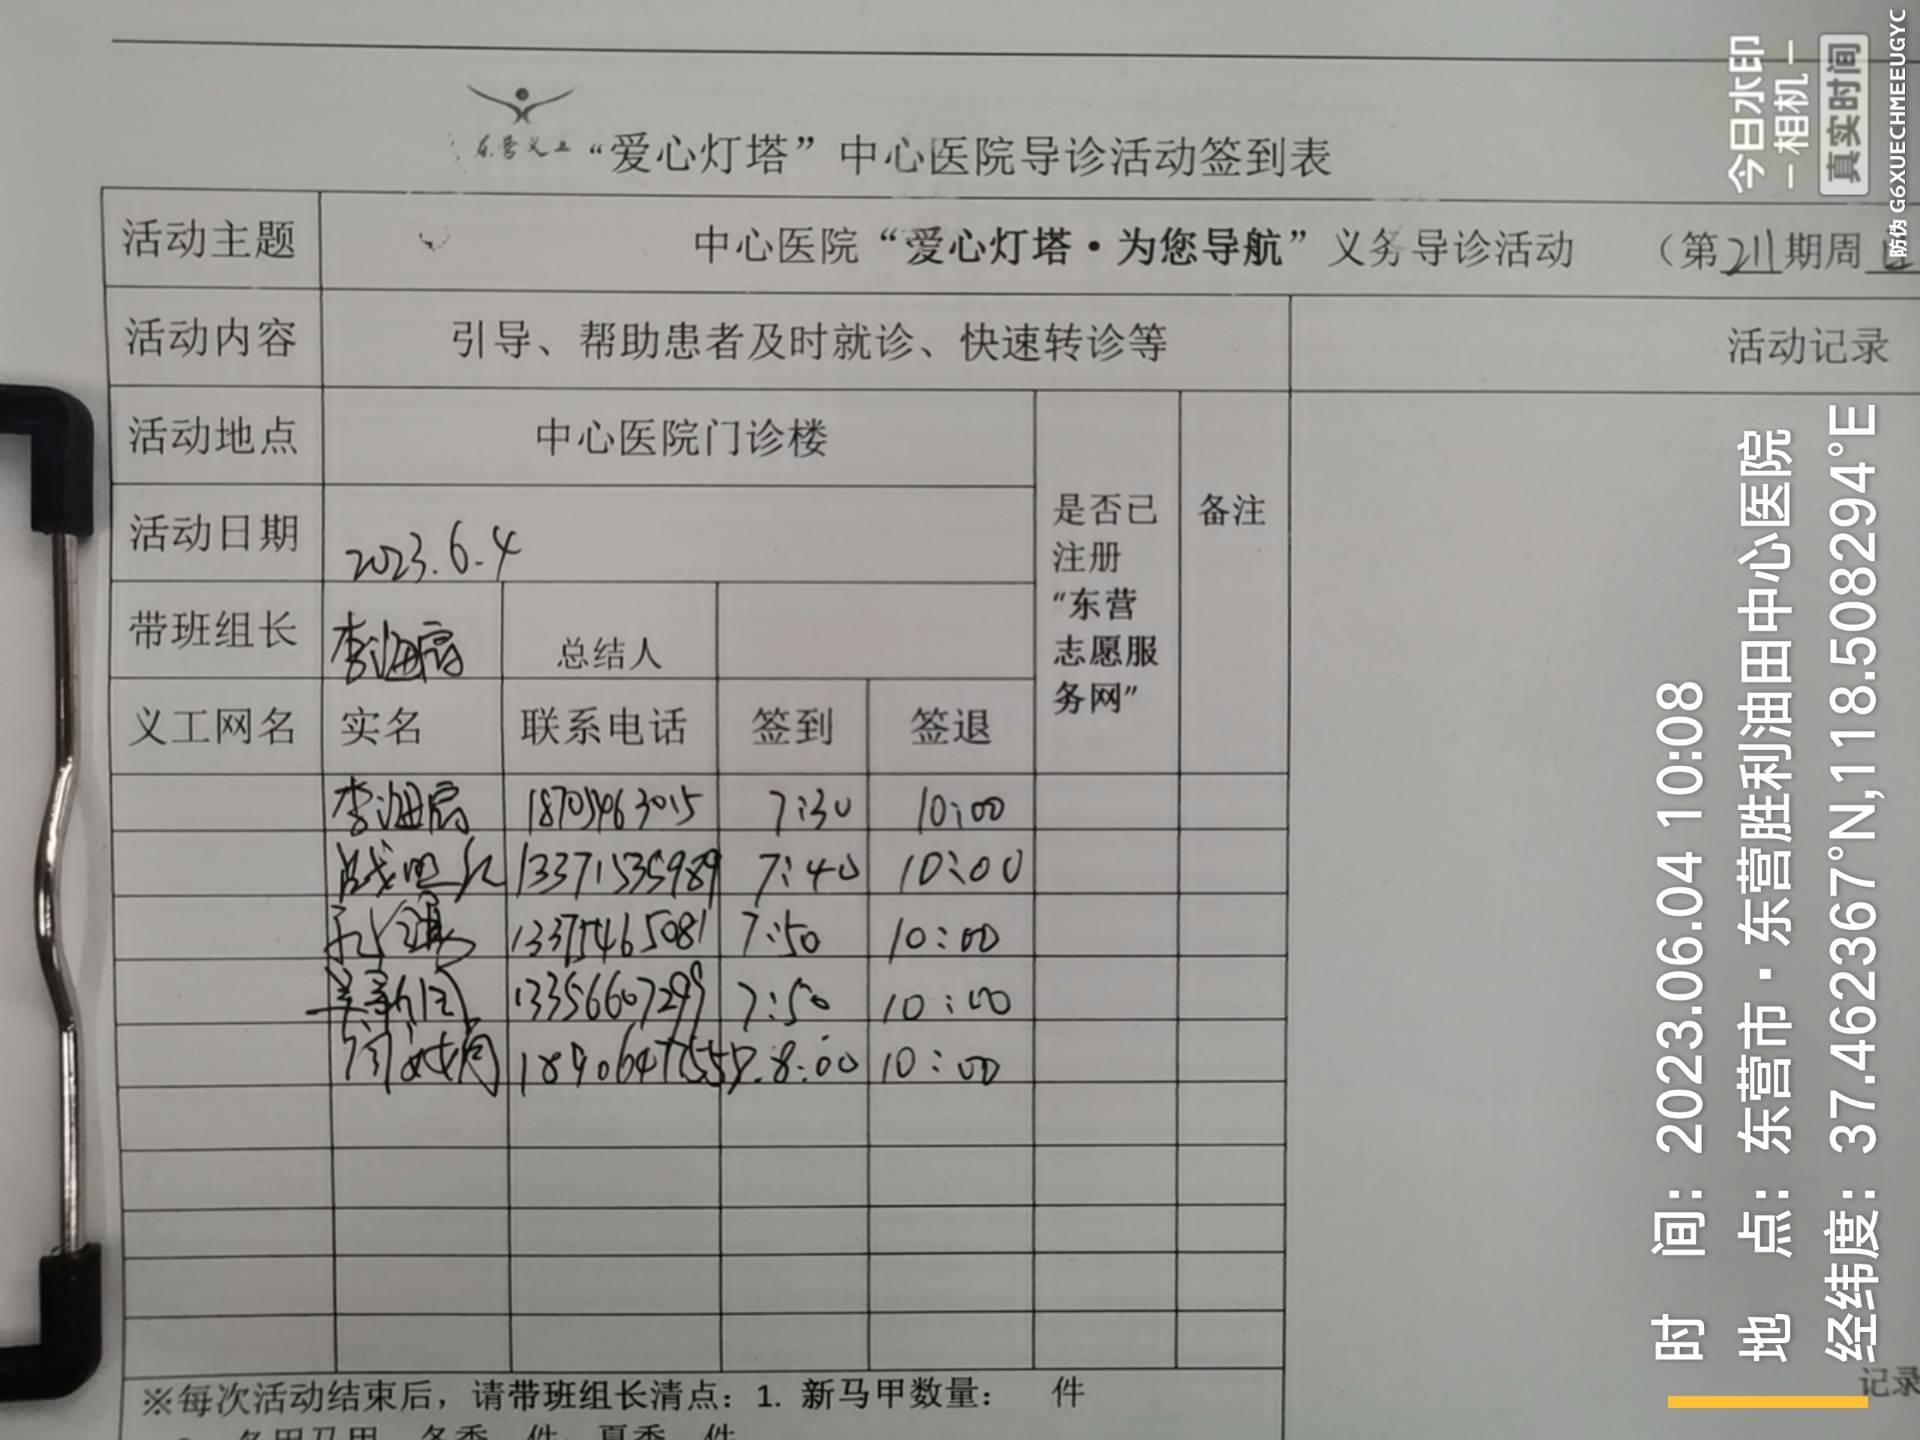 东营义工 “爱心灯塔”中心医院导诊活动签到表
活动主题 中心医院“爱心灯塔·为您导航”义务导诊活动 （第211期周
活动内容 引导、帮助患者及时就诊、快速转诊等 活动记录
活动地点 中心医院门诊楼
是否已注册“东营志愿服务网” 备注
活动日期 2023.6.4
带班组长 李海 总结人
义工网名 实名 联系电话 签到 签退
李海 18705463015 7:30 10:00
13371535989 7:40 10:00
孔 13375465081 7:50 10:00
13356607299 7:50 10:00
8:00 10:00
※每次活动结束后，请带班组长清点：1. 新马甲数量： 件
记录
今日水印
相机
真实时间
防伪 G6XUECHMEEUGYC
时 间：2023.06.04 10:08
地 点：东营市·东营胜利油田中心医院
经纬度：37.462367°N,118.508294°E